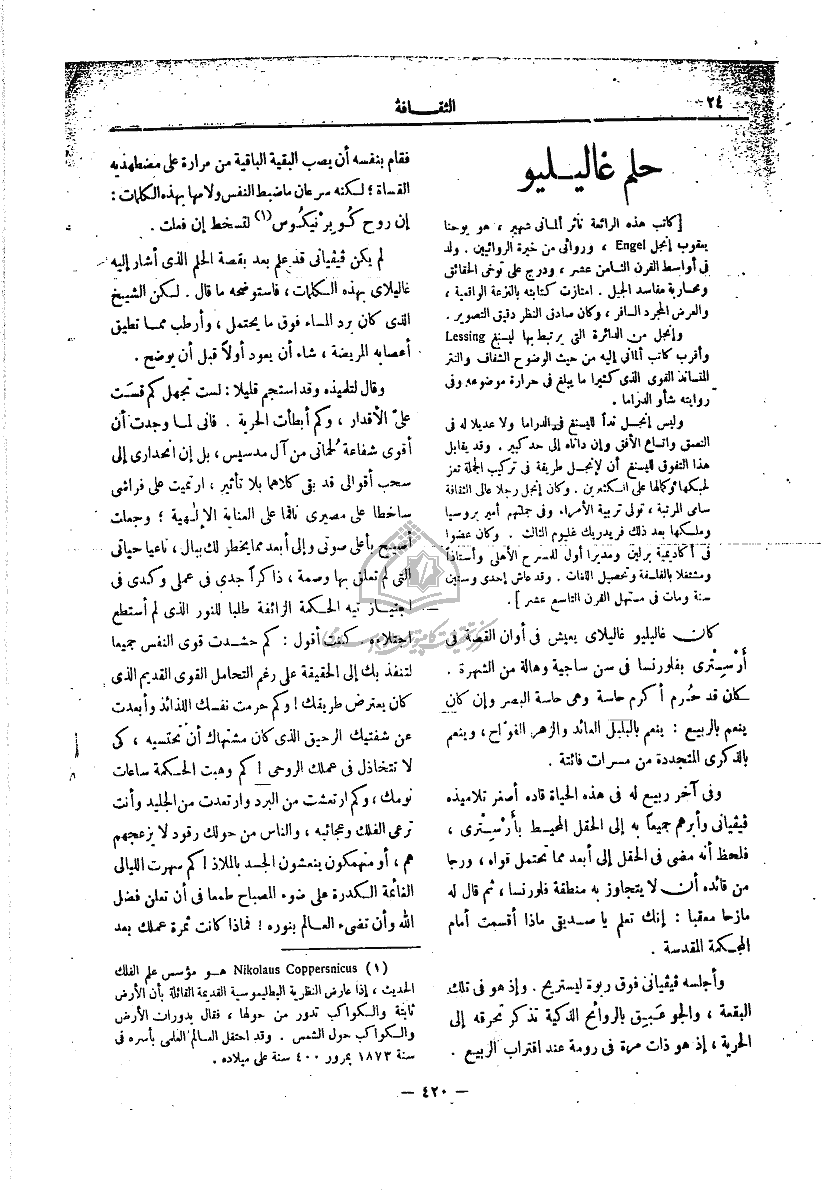 ٢٤
الثقافة
حلم غاليليو
[كاتب هذه الرائعة ناثر ألماني شهير ، هو يوحنا
يعقوب إنجل Engel ، وروائي من خيرة الروائيين . ولد
في أواسط القرن الثامن عشر ، ودرج على توخى الحقائق
ومحاربة مفاسد الجيل . امتازت كتابته بالنزعة الواقعية ،
والعرض المجرد السافر ، وكان صادق النظر دقيق التصوير .
وإنجل من الدائرة التي يرتبط بها ليسنغ Lessing
وأقرب كاتب ألماني إليه من حيث الوضوح الشفاف والنثر
المتساند القوى الذي كثيرا ما يبلغ في حرارة موضوعه وفى
روايته شأو الدراما .
وليس إنجل نداً لليسنغ في الدراما ولا عديلا له في
العمق واتساع الأفق وإن داناه إلى حد كبير . وقد يقابل
هذا التفوق لليسنغ أن لإنجل طريقة في تركيب الجملة تعز
لحبكها وكمالها على الكثيرين . وكان إنجل رجلا عالى الثقافة
سامى المرتبة ، تولى تربية الأمراء وفى جملتهم أمير بروسيا
وملكها بعد ذلك فريدريك غليوم الثالث . وكان عضوا
في أكاديمية برلين ومديرا أول للمسرح الأهلى وأستاذاً
ومشتغلا بالفلسفة وتحصيل اللغات . وقد عاش إحدى وستين
سنة ومات في مستهل القرن التاسع عشر ] .
كان غاليليو غاليلاى يعيش في أوان القصة في
أرْسِتْرى بفلورنسا في سن ساجية وهالة من الشهرة .
كان قد حُرم أكرم حاسة وهى حاسة البصر وإن كان
ينعم بالربيع : ينعم بالبلبل العائد والزهر الفواح ، وينعم
بالذكرى المتجددة من مسرات فائتة .
وفى آخر ربيع له في هذه الحياة قاده أصغر تلاميذه
ڤيڤياني وأبرهم جميعاً به إلى الحقل المحيط بأرْسِتْرى ،
فلحظ أنه مضى في الحقل إلى أبعد مما تحتمل قواه ، ورجا
من قائده أن لا يتجاوز به منطقة فلورنسا ، ثم قال له
مازحا معقبا : إنك تعلم يا صديقي ماذا أقسمت أمام
المحكمة المقدسة .
وأجلسه ڤيڤياني فوق ربوة ليستريح . وإذ هو في تلك
البقعة ، والجو عَبيق بالروائح الذكية تذكر تحرقه إلى
الحرية ، إذ هو ذات مرة في رومة عند اقتراب الربيع .
فقام بنفسه أن يصب البقية الباقية من مرارة على مضطهديه
القساة ؛ لكنه سرعان ما ضبط النفس ولامها بهذه الكلمات :
إن روح كُوبرْنيكُوس (١) لتسخط إن فعلت .
لم يكن ڤيڤياني قد علم بعد بقصة الحلم الذى أشار إليه
غاليلاى بهذه الكلمات ، فاستوضحه ما قال . لكن الشيخ
الذى كان برد المساء فوق ما يحتمل ، وأرطب مما تطيق
أعصابه المريضة ، شاء أن يعود أولاً قبل أن يوضح .
وقال لتلميذه وقد استجم قليلا : لست تجهل كم قست
علىّ الأقدار ، وكم أبطأت الحرية . فانى لما وجدت أن
أقوى شفاعة لحُماتى من آل مدسيس ، بل إن انحدارى إلى
سحب أقوالى قد بقى كلاهما بلا تأثير ، ارتميت على فراشى
ساخطا على مصيرى ناقما على العناية الإلهية ؛ وجعلت
أصيح بأعلى صوتى وإلى أبعد مما يخطر لك ببال ، ناعيا حياتى
التى لم تعلق بها وصمة ، ذاكراً جدى في عملى وكدى في
اجتياز تيه الحكمة الزائفة طلبا للنور الذى لم أستطع
اجتلاءه . كنت أقول : كم حشدت قوى النفس جميعا
لتنفذ بك إلى الحقيقة على رغم التحامل القوى القديم الذى
كان يعترض طريقك ! وكم حرمت نفسك اللذائذ وأبعدت
عن شفتيك الرحيق الذى كان مشتهاك أن تحتسيه ، كى
لا تتخاذل في عملك الروحى ! كم وهبت الحكمة ساعات
نومك ، وكم ارتعشت من البرد وارتعدت من الجليد وأنت
ترعى الفلك وعجائبه ، والناس من حولك رقود لا يزعجهم
هم ، أو منهمكون ينعشون الجسد بالملاذ ! كم سهرت الليالى
القائمة الكدرة على ضوء المصباح طمعا في أن تعلن فضل
الله وأن تضىء العالم بنوره ! فماذا كانت ثمرة عملك بعد
(١) Nikolaus Coppersnicus هو مؤسس علم الفلك
الحديث ، إذا عارض النظرية البطليموسية القديمة القائلة بأن الأرض
ثابتة والكواكب تدور من حولها ، فقال بدورات الأرض
والكواكب حول الشمس . وقد احتفل العالم العلمى بأسره في
سنة ١٨٧٣ بمرور ٤٠٠ سنة على ميلاده .
— ٤٢٠ —